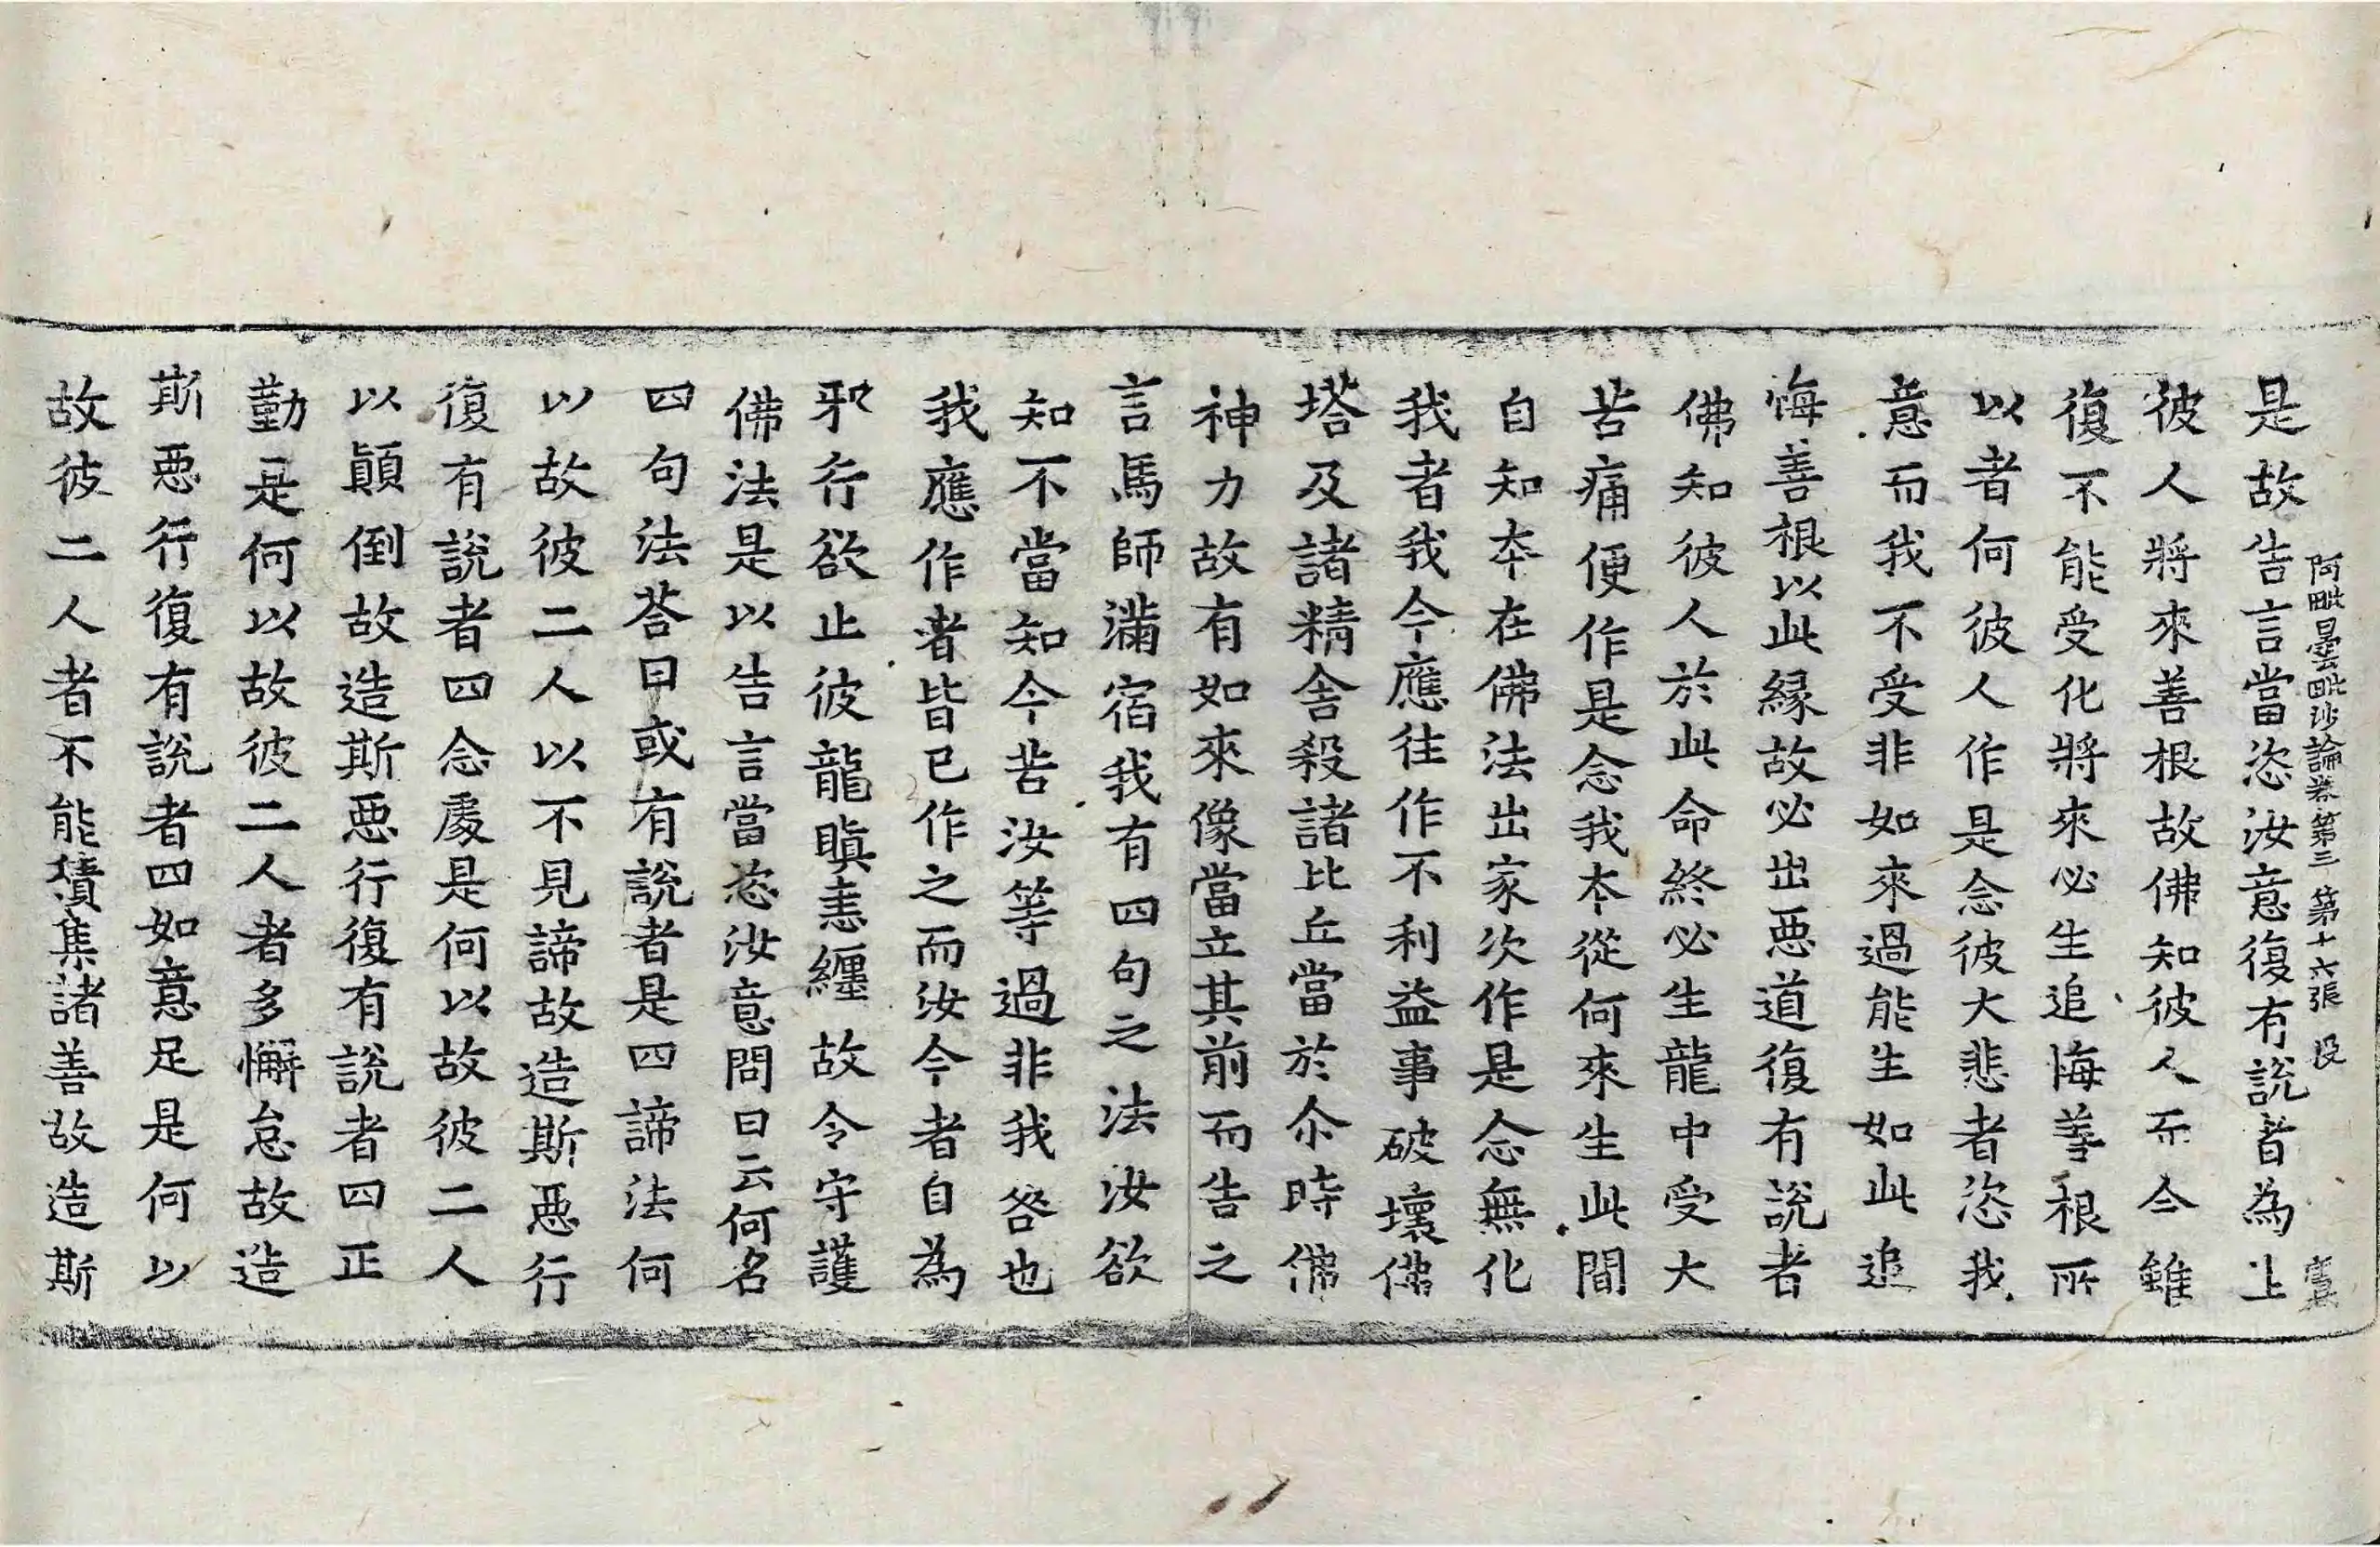 阿毗曇毗沙論卷第三 第十六張 投
是故告言當恣汝意復有說者為止
彼人將來善根故佛知彼人而今雖
復不能受化將來必生追悔善根所
以者何彼人作是念彼大悲者恣我
意而我不受非如來過能生如此追
悔善根以此緣故必出惡道復有說者
佛知彼人於此命終必生龍中受大
苦痛便作是念我本從何來生此間
自知本在佛法出家次作是念無化
我者我今應往作不利益事破壞佛
塔及諸精舍殺諸比丘當於尒時佛
神力故有如來像當立其前而告之
言馬師滿宿我有四句之法汝欲
知不當知今苦汝等過非我咎也
我應作者皆已作之而汝今者自為
邪行欲止彼龍瞋恚纏故令守護
佛法是以告言當恣汝意問曰云何名
四句法荅曰或有說者是四諦法何
以故彼二人以不見諦故造斯惡行
復有說者四念處是何以故彼二人
以顛倒故造斯惡行復有說者四正
勤是何以故彼二人者多懈怠故造
斯惡行復有說者四如意足是何以
故彼二人者不能積集諸善故造斯